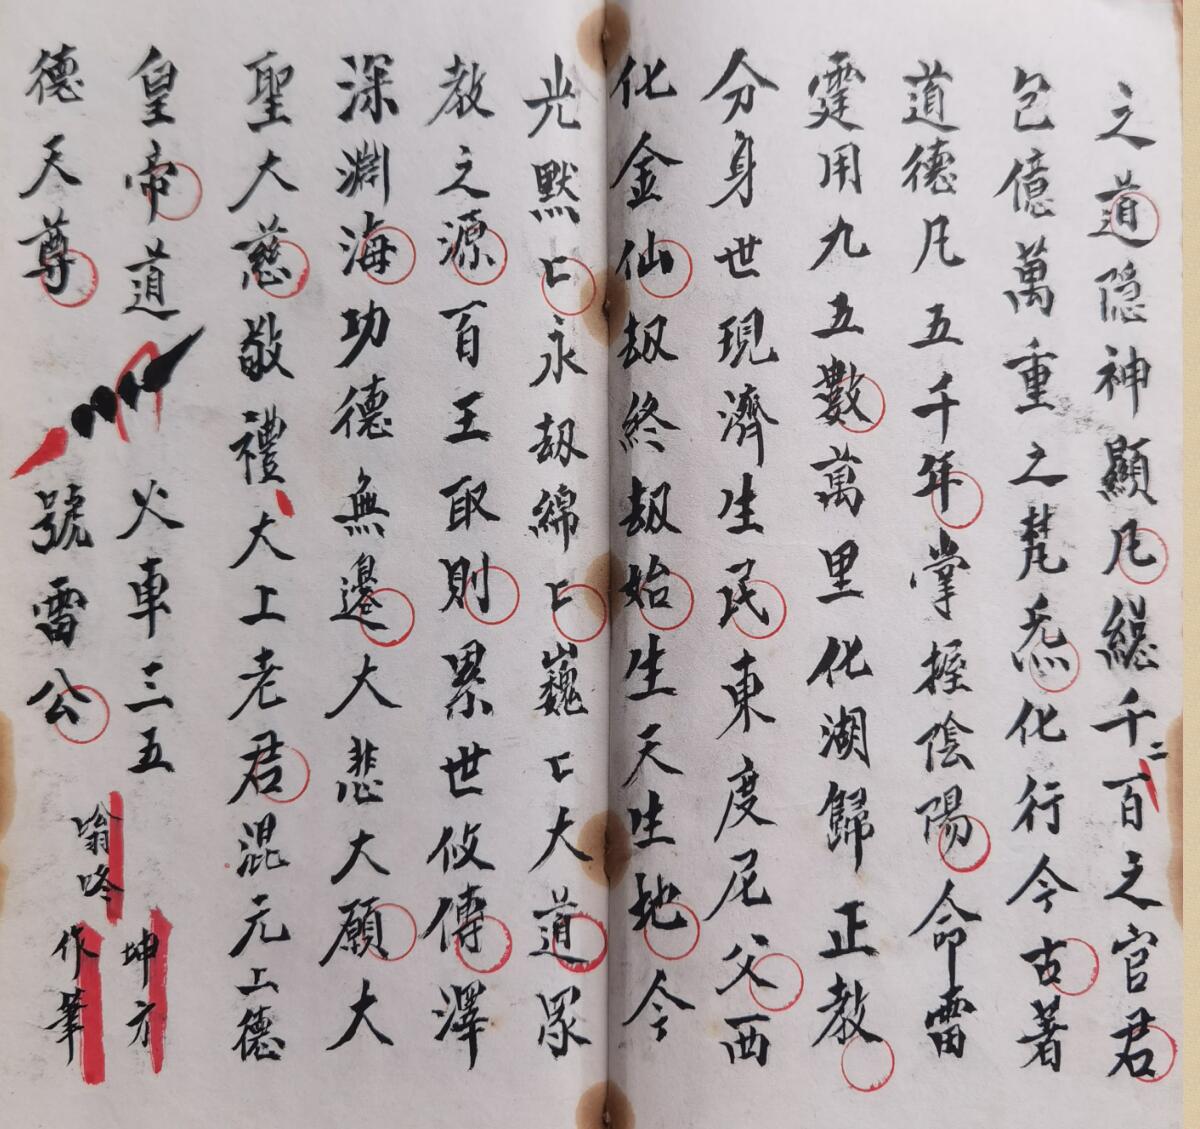 之道隐神顯凡緫千二百之官君
包億萬重之梵炁化行今古著
道德凡五千年掌握陰陽命雷
霆用九五數萬里化湖歸正教
分身世現濟生民東度尼父西
化金仙劫終劫始生天生地今
光默匕永劫綿匕巍匕大道眾
教之源百王取則累世攸傳澤
深淵海功德無邊大悲大願大
聖大慈敬禮大上老君混元上德
皇帝道
德天尊
火車三五
號雷公
嗡咚
坤方
作筆